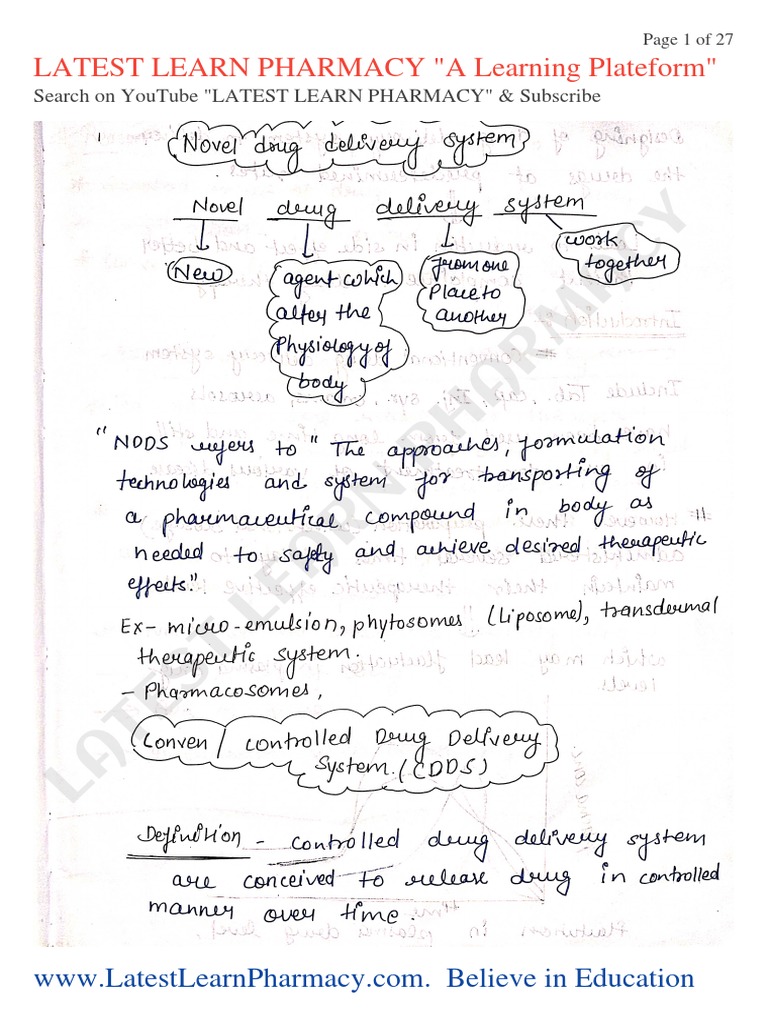 Page 1 of 27
LATEST LEARN PHARMACY "A Learning Plateform"
Search on YouTube "LATEST LEARN PHARMACY" & Subscribe
Novel drug delivery system
Novel drug delivery system
New
agent which
alter the
Physiology of
body
from one
Place to
another
work
together
"NDDS refers to "The approaches, formulation
technologies and system for transporting of
a pharmaceutical compound in body as
needed to safely and achieve desired therapeutic
effects."
Ex- micro-emulsion, phytosomes (Liposome), transdermal
therapeutic system.
- Pharmacosomes,
Conven / controlled Drug Delivery
System. (CDDS)
Definition - controlled drug delivery system
are conceived to release drug in controlled
manner over time.
LATEST LEARN PHARMACY
www.LatestLearnPharmacy.com. Believe in Education